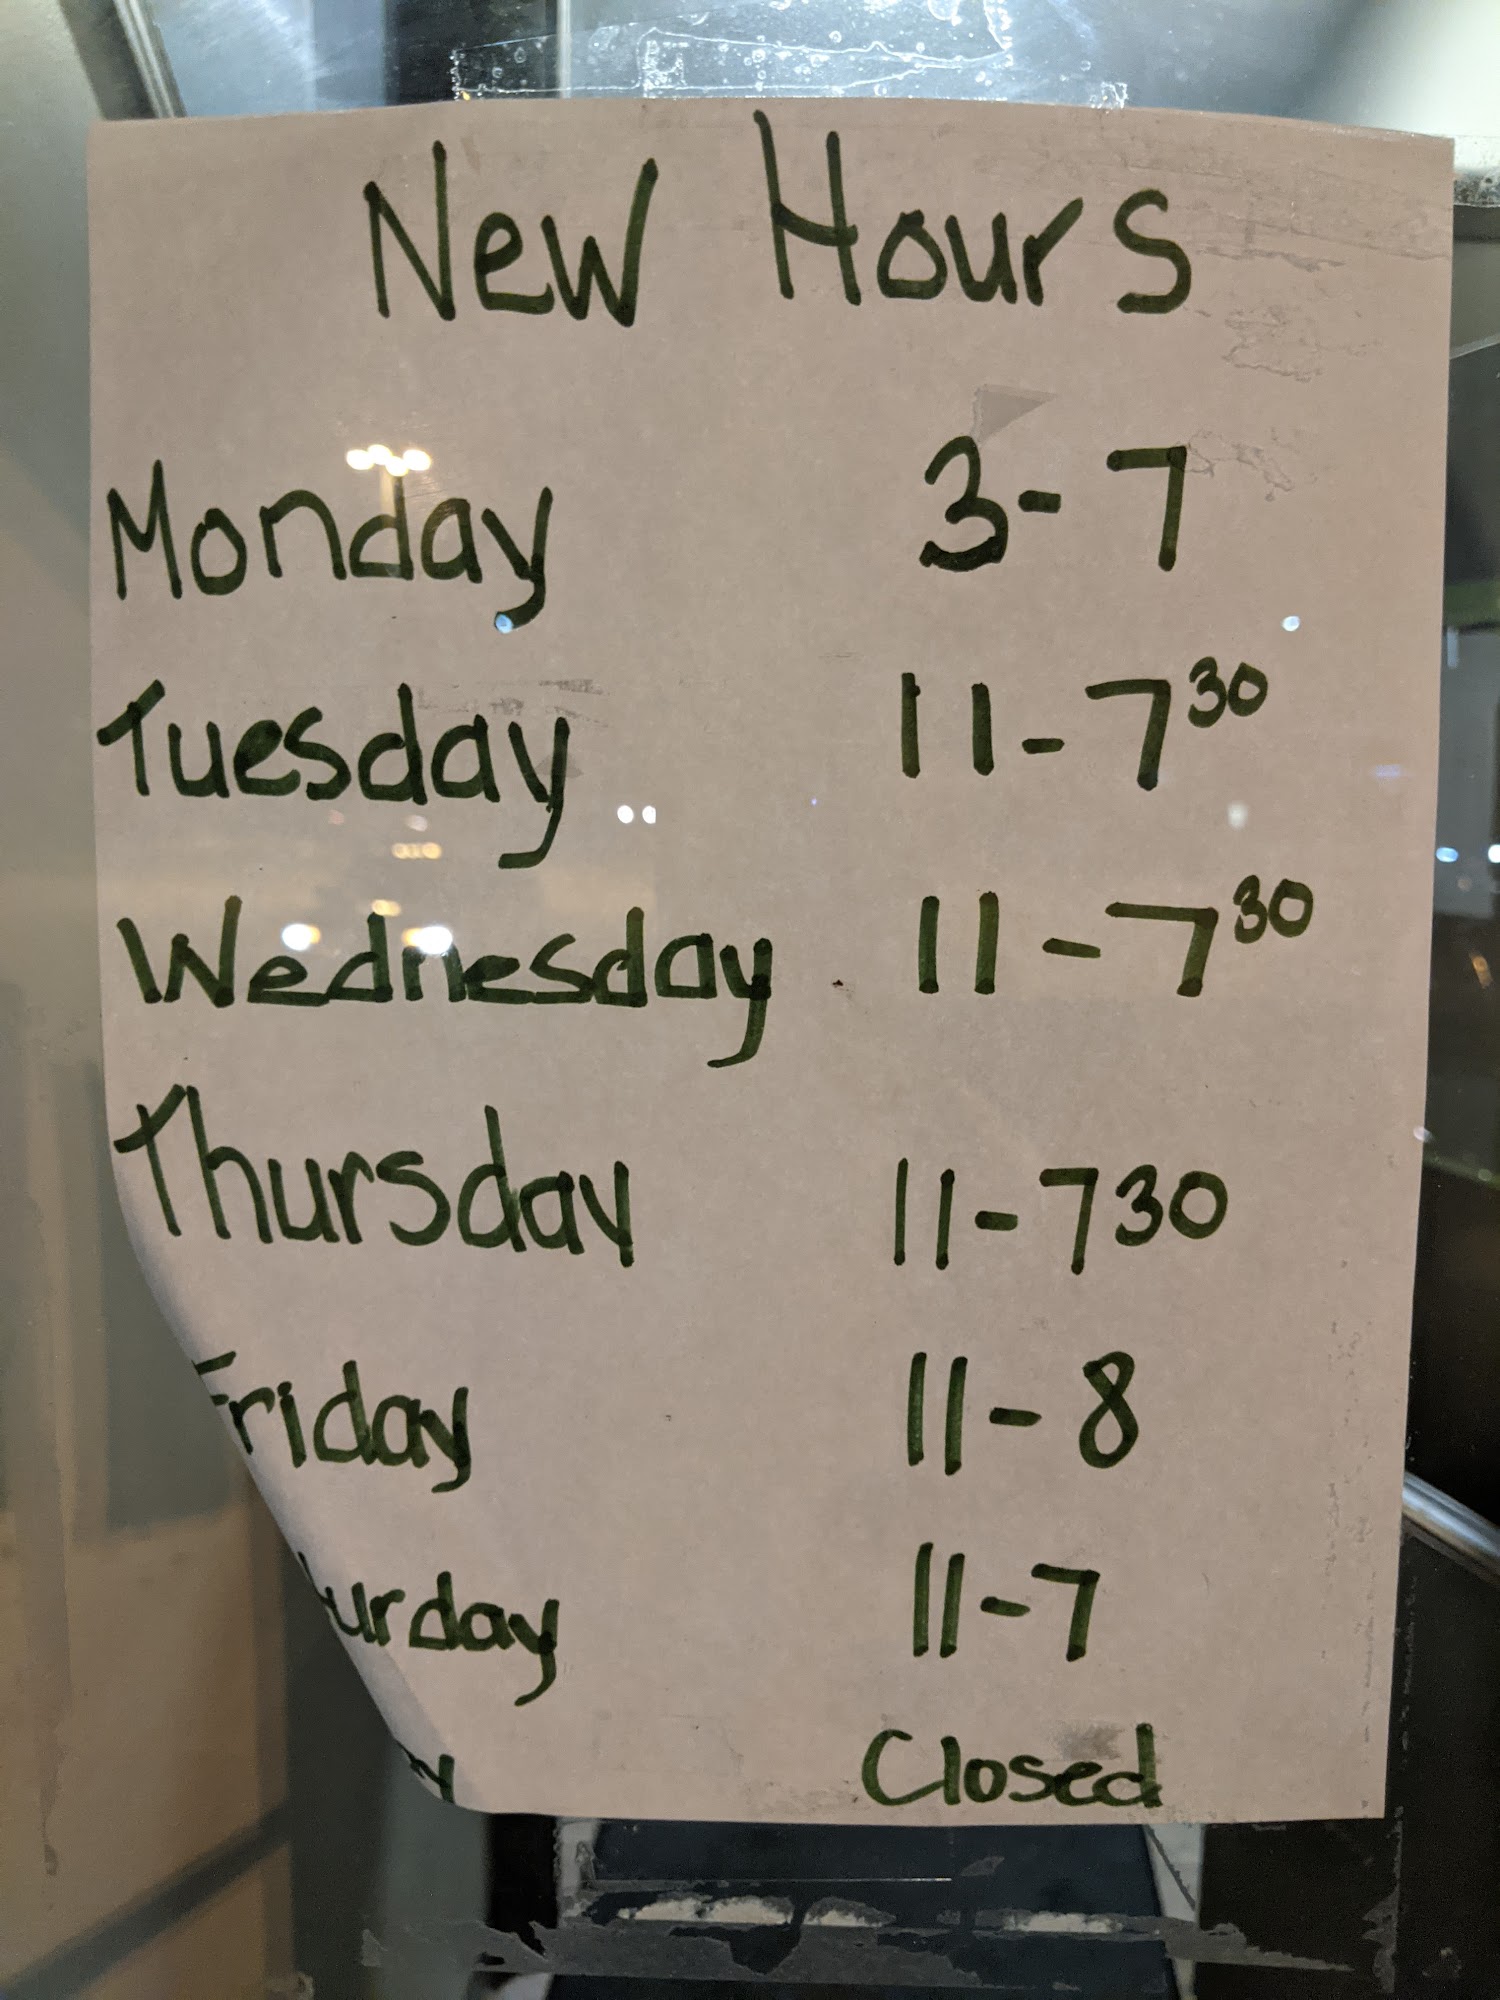 New Hours
Monday 3-7
Tuesday 11-7³⁰
Wednesday 11-7³⁰
Thursday 11-730
Friday 11-8
urday 11-7
Closed